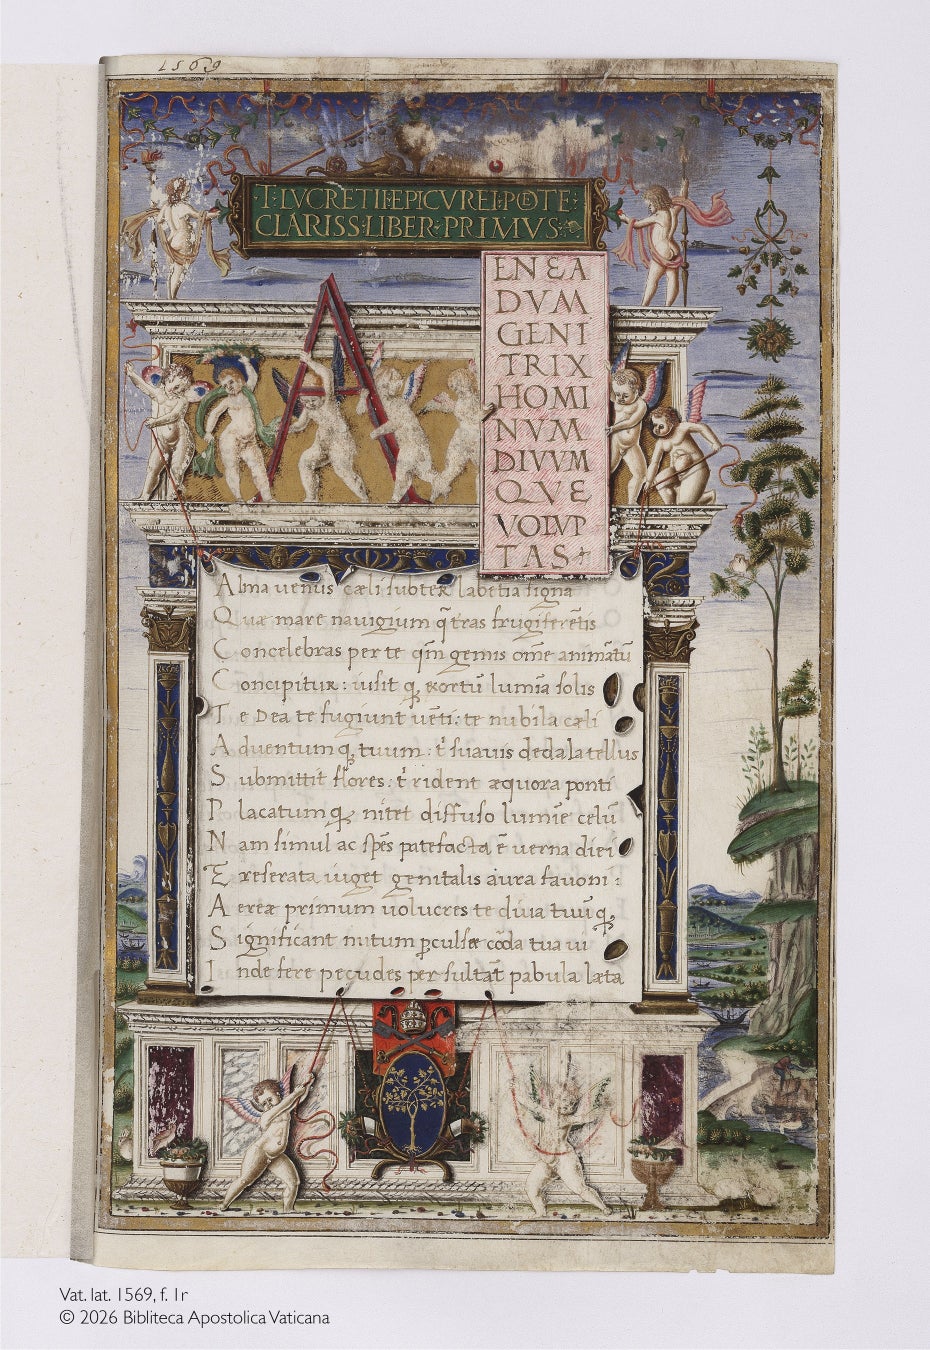 1569
·T·LVCRETII·EPICVREI·POETE·
CLARISS·LIBER·PRIMVS·
A
ENEA
DVM
GENI
TRIX
HOMI
NVM
DIVVM
QVE
VOLVP
TAS
Alma uenus cæli subter labentia signa
Quæ mare nauigium q̃ tras frugiferẽtis
Concelebras per te qm̃ genus om̃e animãtũ
Concipitur: uisit q; exortũ lumĩa solis
Te Dea te fugiunt uẽti: te nubila cæli
Aduentum q; tuum: t̃ suauis dedala tellus
Submittit flores: t̃ rident æquora ponti
Placatum q; nitet diffuso lumĩe celũ
Nam simul ac spẽs patefacta ẽ uerna diei
Et reserata uiget genitalis aura fauoni:
Aereæ primum uolucres te diua tuũ q;
Significant initum ꝑculsæ corda tua ui
Inde fere pecudes per sultãt pabula læta
Vat. lat. 1569, f. 1r
© 2026 Bibliteca Apostolica Vaticana